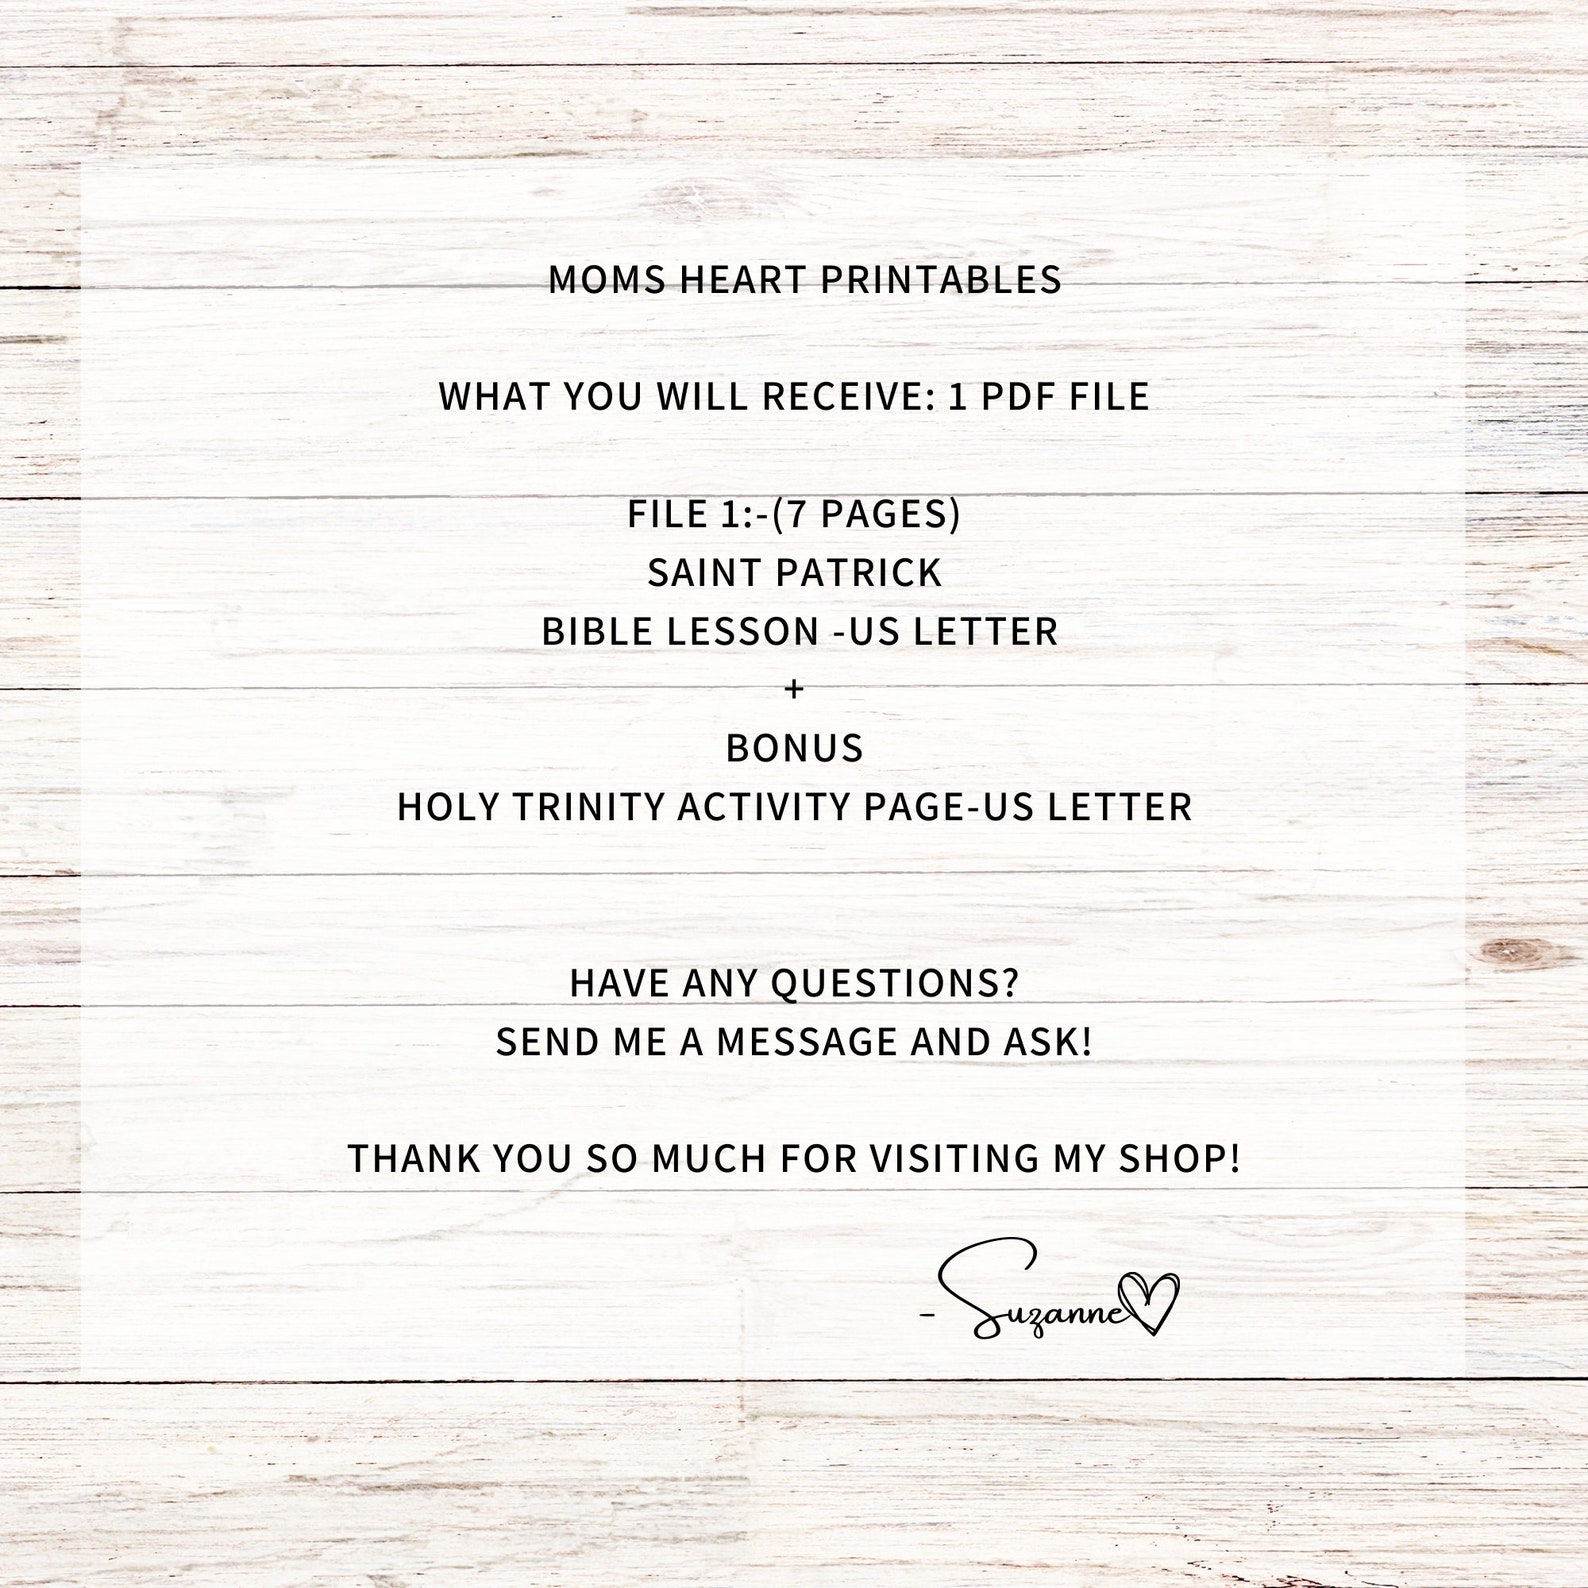 MOMS HEART PRINTABLES
WHAT YOU WILL RECEIVE: 1 PDF FILE
FILE 1:-(7 PAGES)
SAINT PATRICK
BIBLE LESSON -US LETTER
+
BONUS
HOLY TRINITY ACTIVITY PAGE-US LETTER
HAVE ANY QUESTIONS?
SEND ME A MESSAGE AND ASK!
THANK YOU SO MUCH FOR VISITING MY SHOP!
-Suzanne